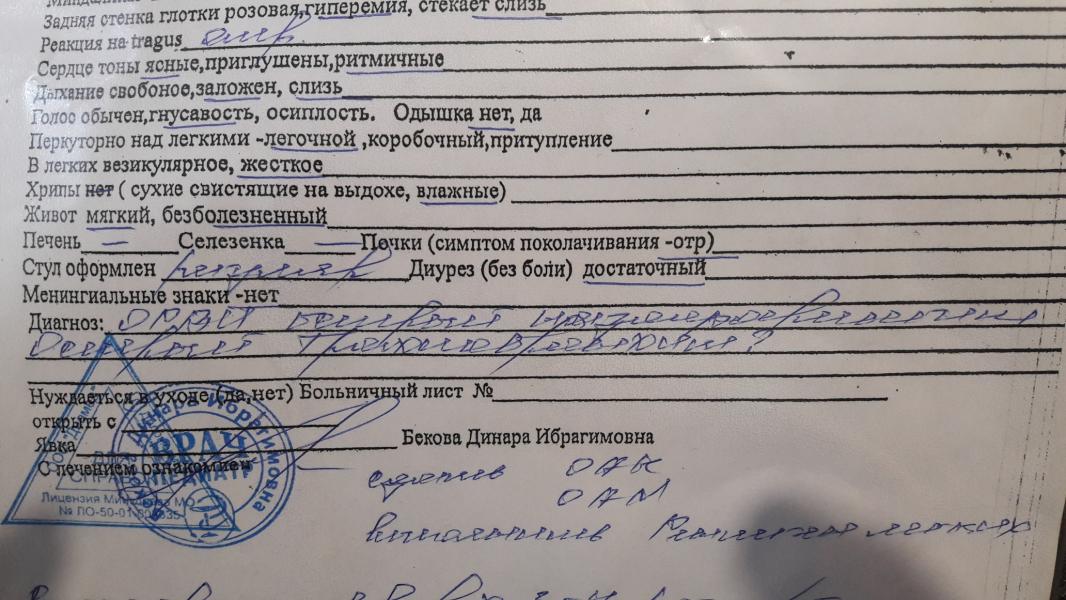 Задняя стенка глотки розовая,гиперемия, стекает слизь
Реакция на tragus отр
Сердце тоны ясные,приглушены,ритмичные
Дыхание свобоное,заложен, слизь
Голос обычен,гнусавость, осиплость. Одышка нет, да
Перкуторно над легкими -легочной ,коробочный,притупление
В легких везикулярное, жесткое
Хрипы нет ( сухие свистящие на выдохе, влажные)
Живот мягкий, безболезненный
Печень — Селезенка — Почки (симптом поколачивания -отр)
Стул оформлен регуляр Диурез (без боли) достаточный
Менингиальные знаки -нет
Диагноз: ОРВИ острый назофарингит
Острый трахеобронхит?
Нуждаеться в уходе (да,нет) Больничный лист №
открыть с
Явка Бекова Динара Ибрагимовна
С лечением ознакомлен
Динара Ибрагимовна
ВРАЧ
ПЕДИАТР
ДЛЯ
СПРАВОК
Лицензия МО
№ ЛО-50-01-
сдать ОАК
ОАМ
выполнить Рентген легких